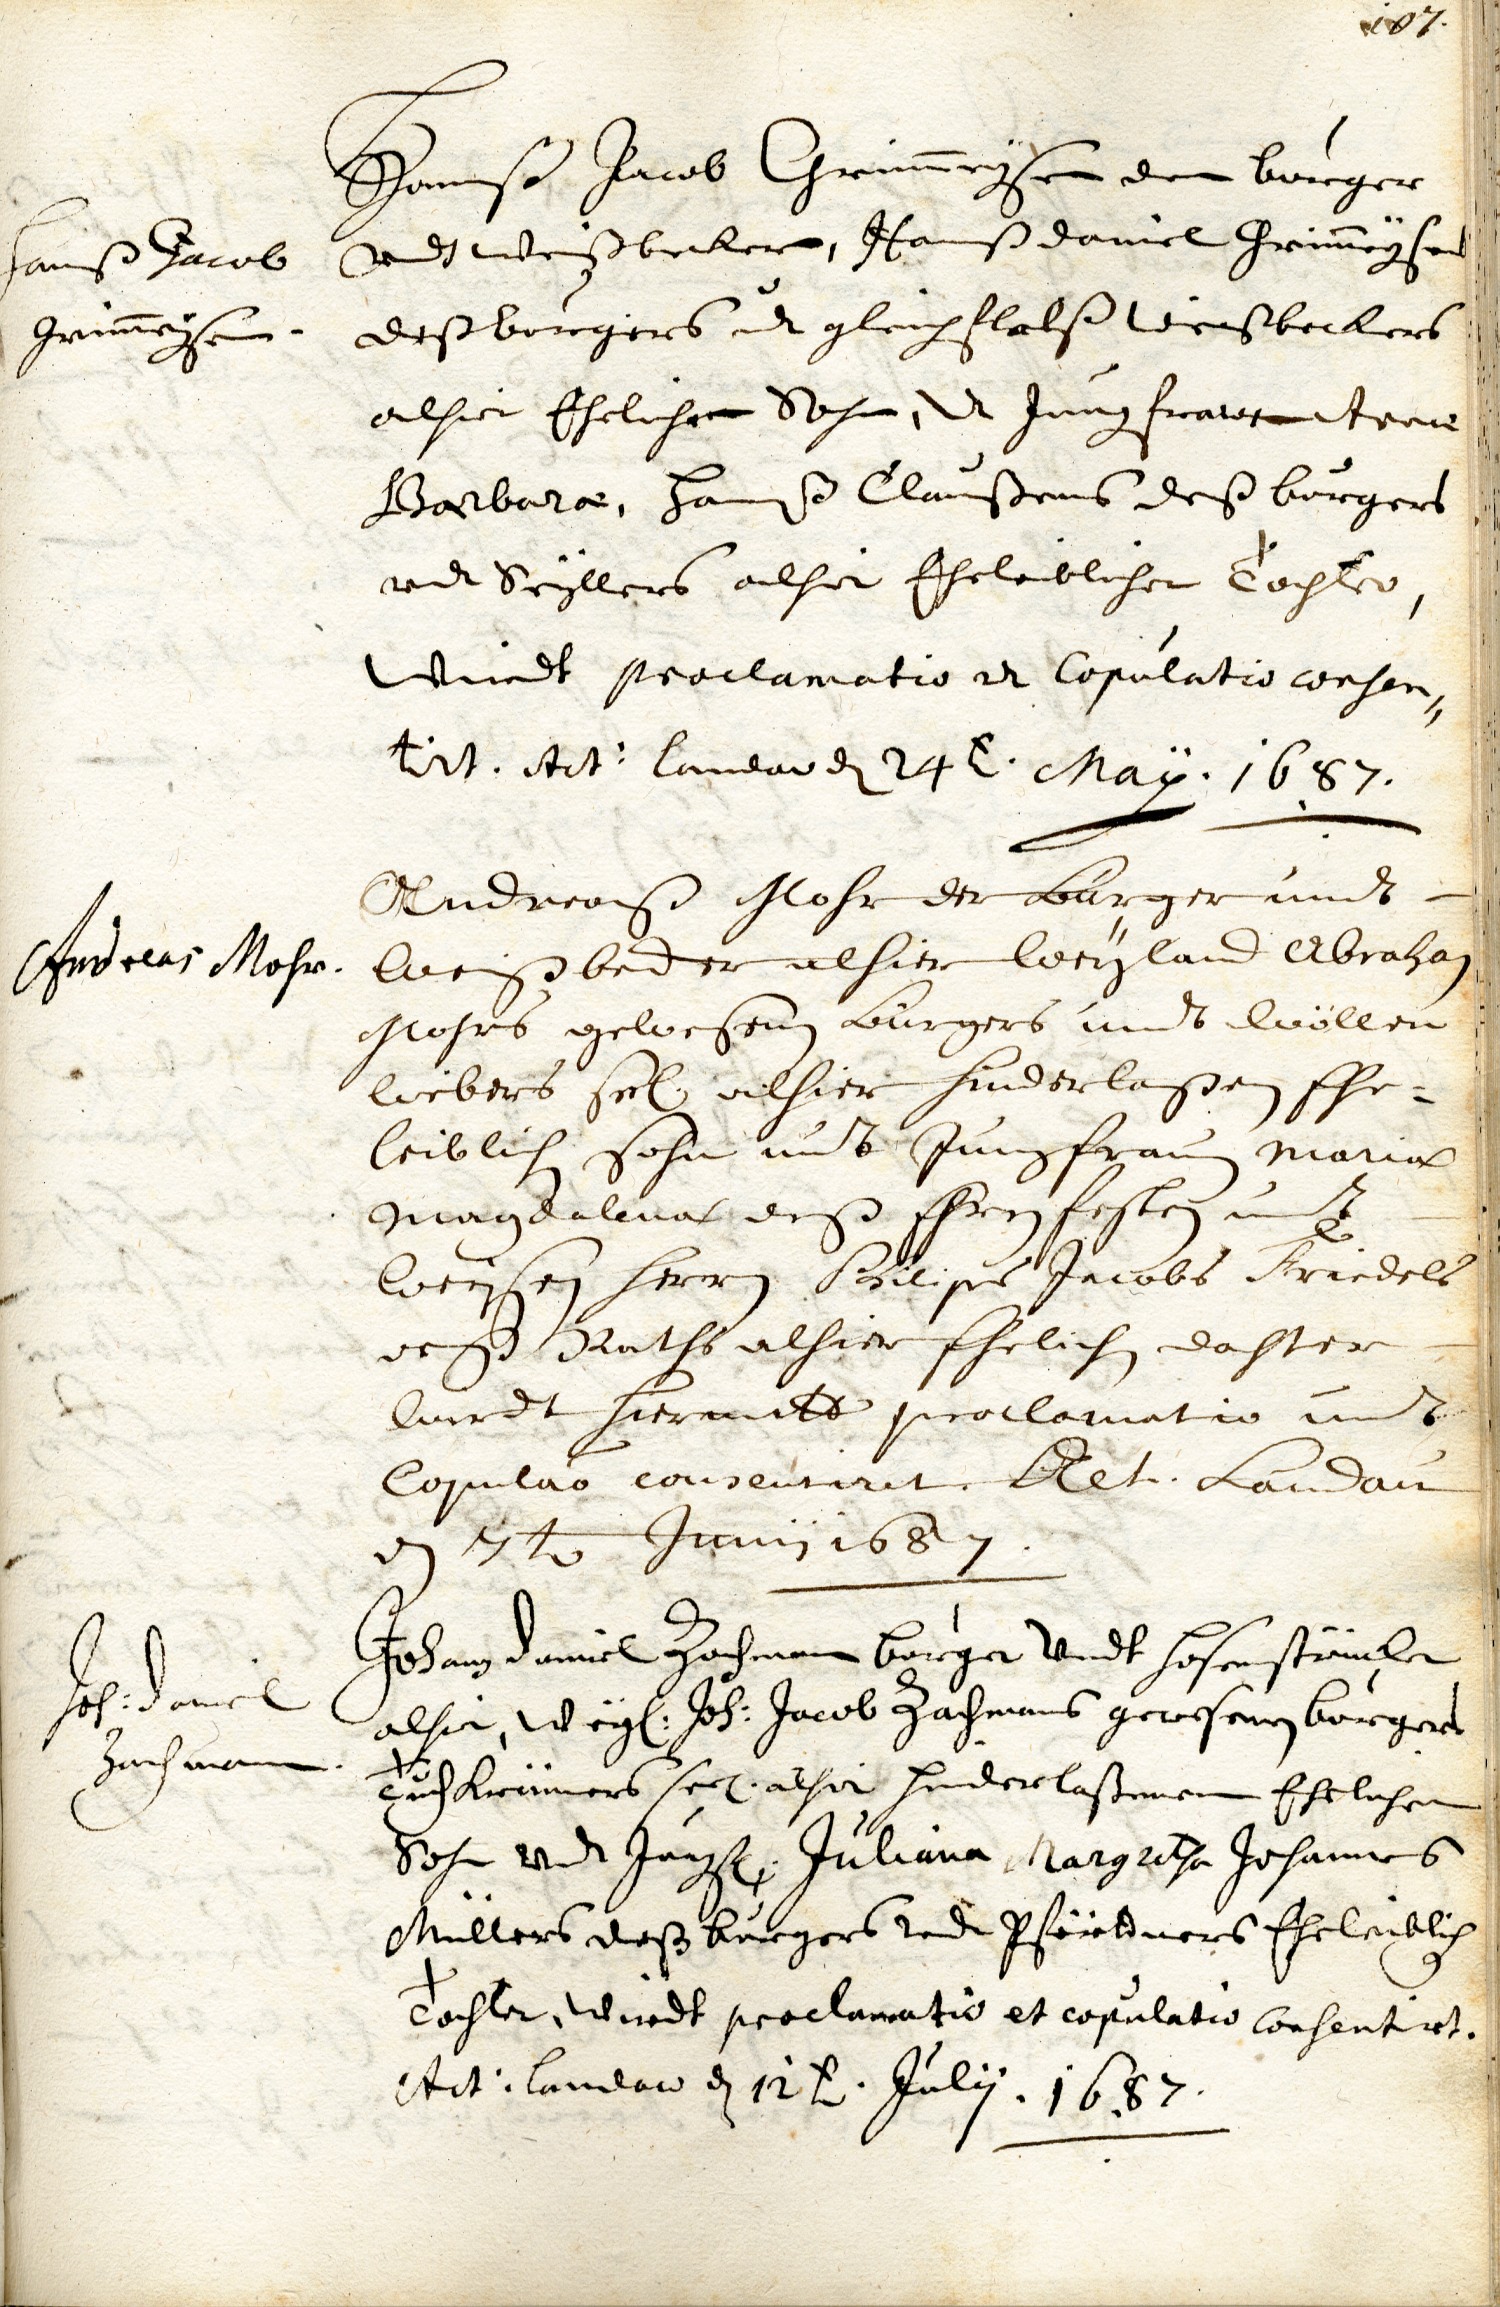 107.
Hannß Jacob Grimmeysen dem burger
Hannß Jacob
Grimmeysen.
vndt Weißbeckern, Hannß Daniel Grimmeysens
deß burgers vndt gleichfalß Weißbeckers
alhier Ehelichen Sohn, vndt Jungfrawen Anna
Barbara, Hannß Claußens deß burgers
vndt Seyllers alhier Eheleiblicher Tochter,
Wirdt proclamatio vndt Copulatio consen„
tirt. Act: Landaw den 24t. Maÿ. 1687.
Andreas Mohr.
Andreaß Mohr der Burger undt
Weißbecker alhier Weyland Abraham
Mohrs gewesenen Burgers undt Wöllen
Webers seel. alhier hinderlaßen Ehe-
leiblich Sohn undt Jungfrauen Maria
Magdalena deß Ehrnfesten undt
Weysen Herrn Philips Jacobs Friedels
deß Raths alhier Ehelich dochter
Wirdt hiermitt proclamatio undt
Copulao consentirt. Act. Landau
den 7te Junij 1687.
Joh: Daniel
Zachmann.
Johann Daniel Zachmann burger Vndt hosenstricker
alhier, Weyl: Joh: Jacob Zachmans gewesenen burgers
Tuchkrämers seel. alhier hinderlaßenem Ehelichen
Sohn vndt Jungfr. Juliana Margretha Johannes
Müllers deß burgers vndt Pfördners Eheleiblich
Tochter, Wirdt proclamatio et copulatio Consentirt.
Act: Landaw den 12t. Julij. 1687.